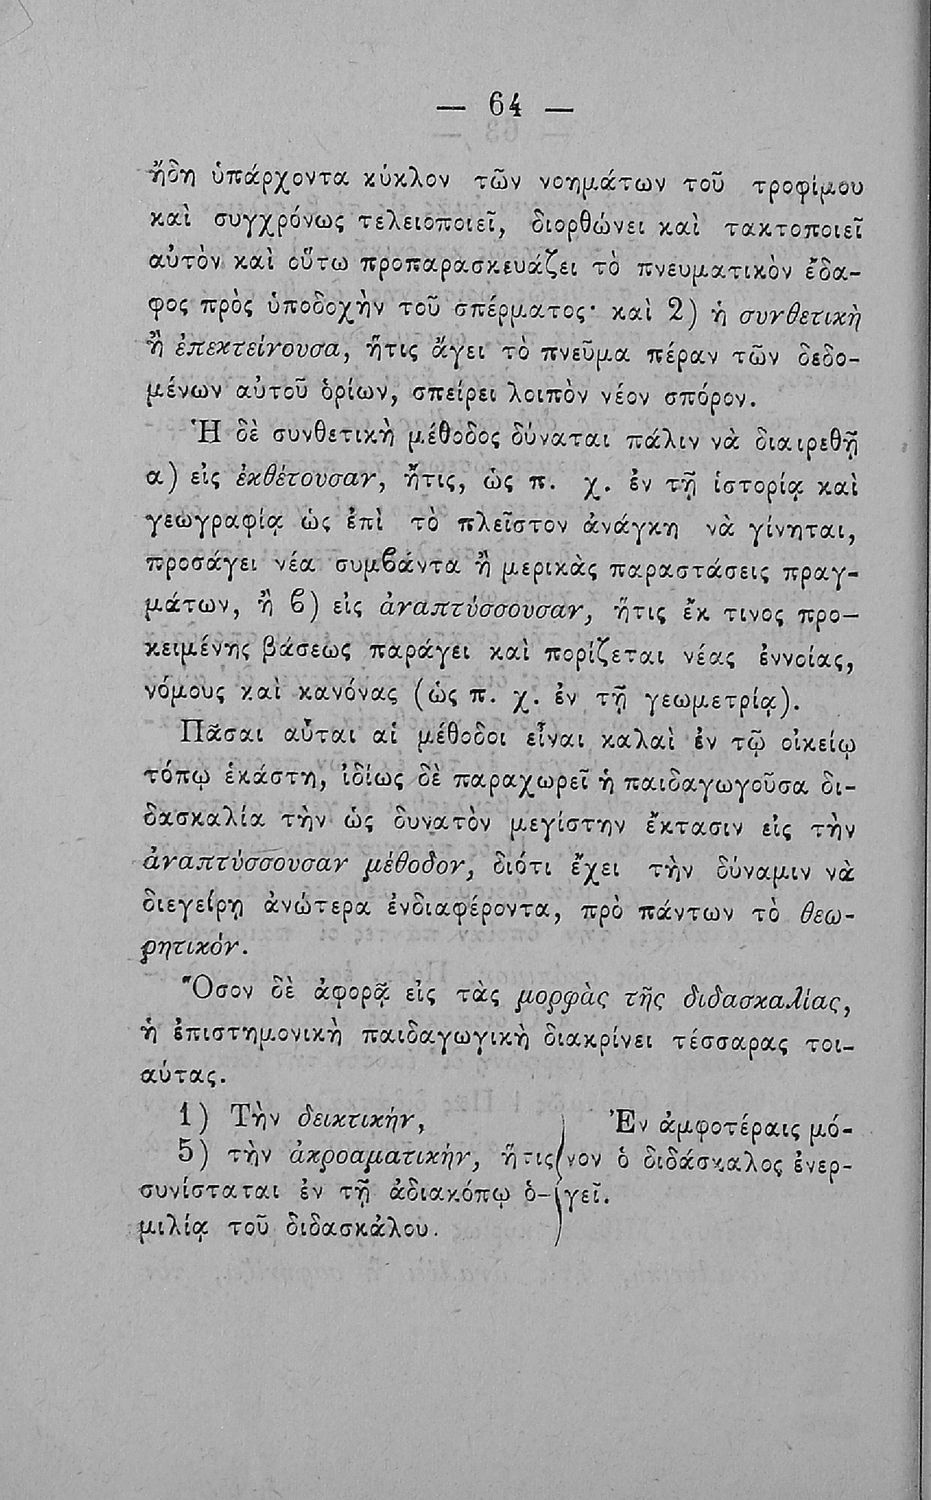 — 64 —
ἤδη ὑπάρχοντα κύκλον τῶν νοημάτων τοῦ τροφίμου
καὶ συγχρόνως τελειοποιεῖ, διορθώνει καὶ τακτοποιεῖ
αὐτὸν καὶ οὕτω προπαρασκευάζει τὸ πνευματικὸν ἔδα-
φος πρὸς ὑποδοχὴν τοῦ σπέρματος· καὶ 2) ἡ συνθετικὴ
ἢ ἐπεκτείνουσα, ἥτις ἄγει τὸ πνεῦμα πέραν τῶν δεδο-
μένων αὐτοῦ ὁρίων, σπείρει λοιπὸν νέον σπόρον.
Ἡ δὲ συνθετικὴ μέθοδος δύναται πάλιν νὰ διαιρεθῇ
α) εἰς ἐκθέτουσαν, ἥτις, ὡς π. χ. ἐν τῇ ἱστορίᾳ καὶ
γεωγραφίᾳ ὡς ἐπὶ τὸ πλεῖστον ἀνάγκη νὰ γίνηται,
προσάγει νέα συμβάντα ἢ μερικὰς παραστάσεις πραγ-
μάτων, ἢ β) εἰς ἀναπτύσσουσαν, ἥτις ἔκ τινος προ-
κειμένης βάσεως παράγει καὶ πορίζεται νέας ἐννοίας,
νόμους καὶ κανόνας (ὡς π. χ. ἐν τῇ γεωμετρίᾳ).
Πᾶσαι αὗται αἱ μέθοδοι εἶναι καλαὶ ἐν τῷ οἰκείῳ
τόπῳ ἑκάστη, ἰδίως δὲ παραχωρεῖ ἡ παιδαγωγοῦσα δι-
δασκαλία τὴν ὡς δυνατὸν μεγίστην ἔκτασιν εἰς τὴν
ἀναπτύσσουσαν μέθοδον, διότι ἔχει τὴν δύναμιν νὰ
διεγείρῃ ἀνώτερα ἐνδιαφέροντα, πρὸ πάντων τὸ θεω-
ρητικόν.
Ὅσον δὲ ἀφορᾷ εἰς τὰς μορφὰς τῆς διδασκαλίας,
ἡ ἐπιστημονικὴ παιδαγωγικὴ διακρίνει τέσσαρας τοι-
αύτας.
1) Τὴν δεικτικήν,
5) τὴν ἀκροαματικήν, ἥτις
συνίσταται ἐν τῇ ἀδιακόπῳ ὁ-
μιλίᾳ τοῦ διδασκάλου.
Ἐν ἀμφοτέραις μό-
νον ὁ διδάσκαλος ἐνερ-
γεῖ.